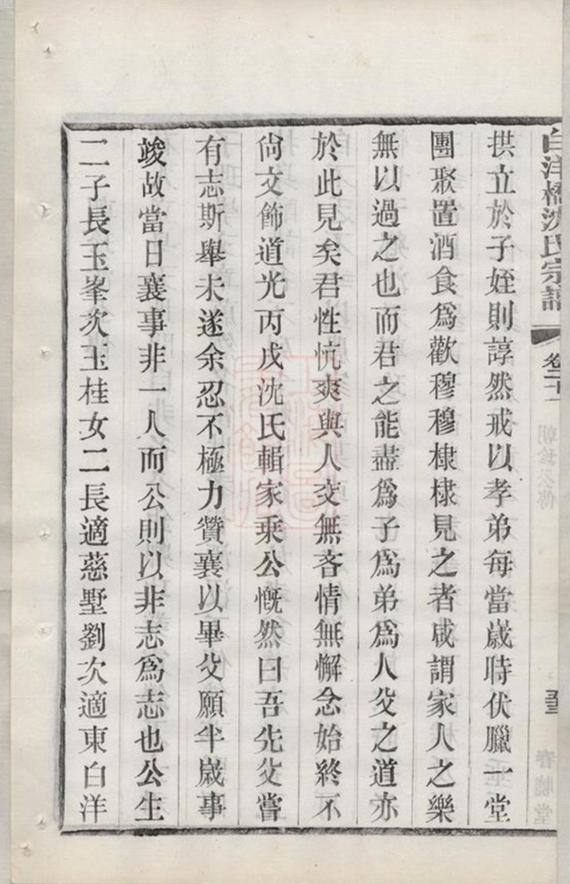 白洋橋沈氏宗譜
卷二十一
拱立於子姪則諄然戒以孝弟每當歲時伏臘一堂
團聚置酒食爲歡穆穆棣棣見之者咸謂家人之樂
無以過之也而君之能盡爲子爲弟爲人父之道亦
於此見矣君性伉爽與人交無吝情無懈念始終不
尙文飾道光丙戌沈氏輯家乘公慨然曰吾先父嘗
有志斯舉未遂余忍不極力贊襄以畢父願半歲事
竣故當日襄事非一人而公則以非志爲志也公生
二子長玉峯次玉桂女二長適慈墅劉次適東白洋